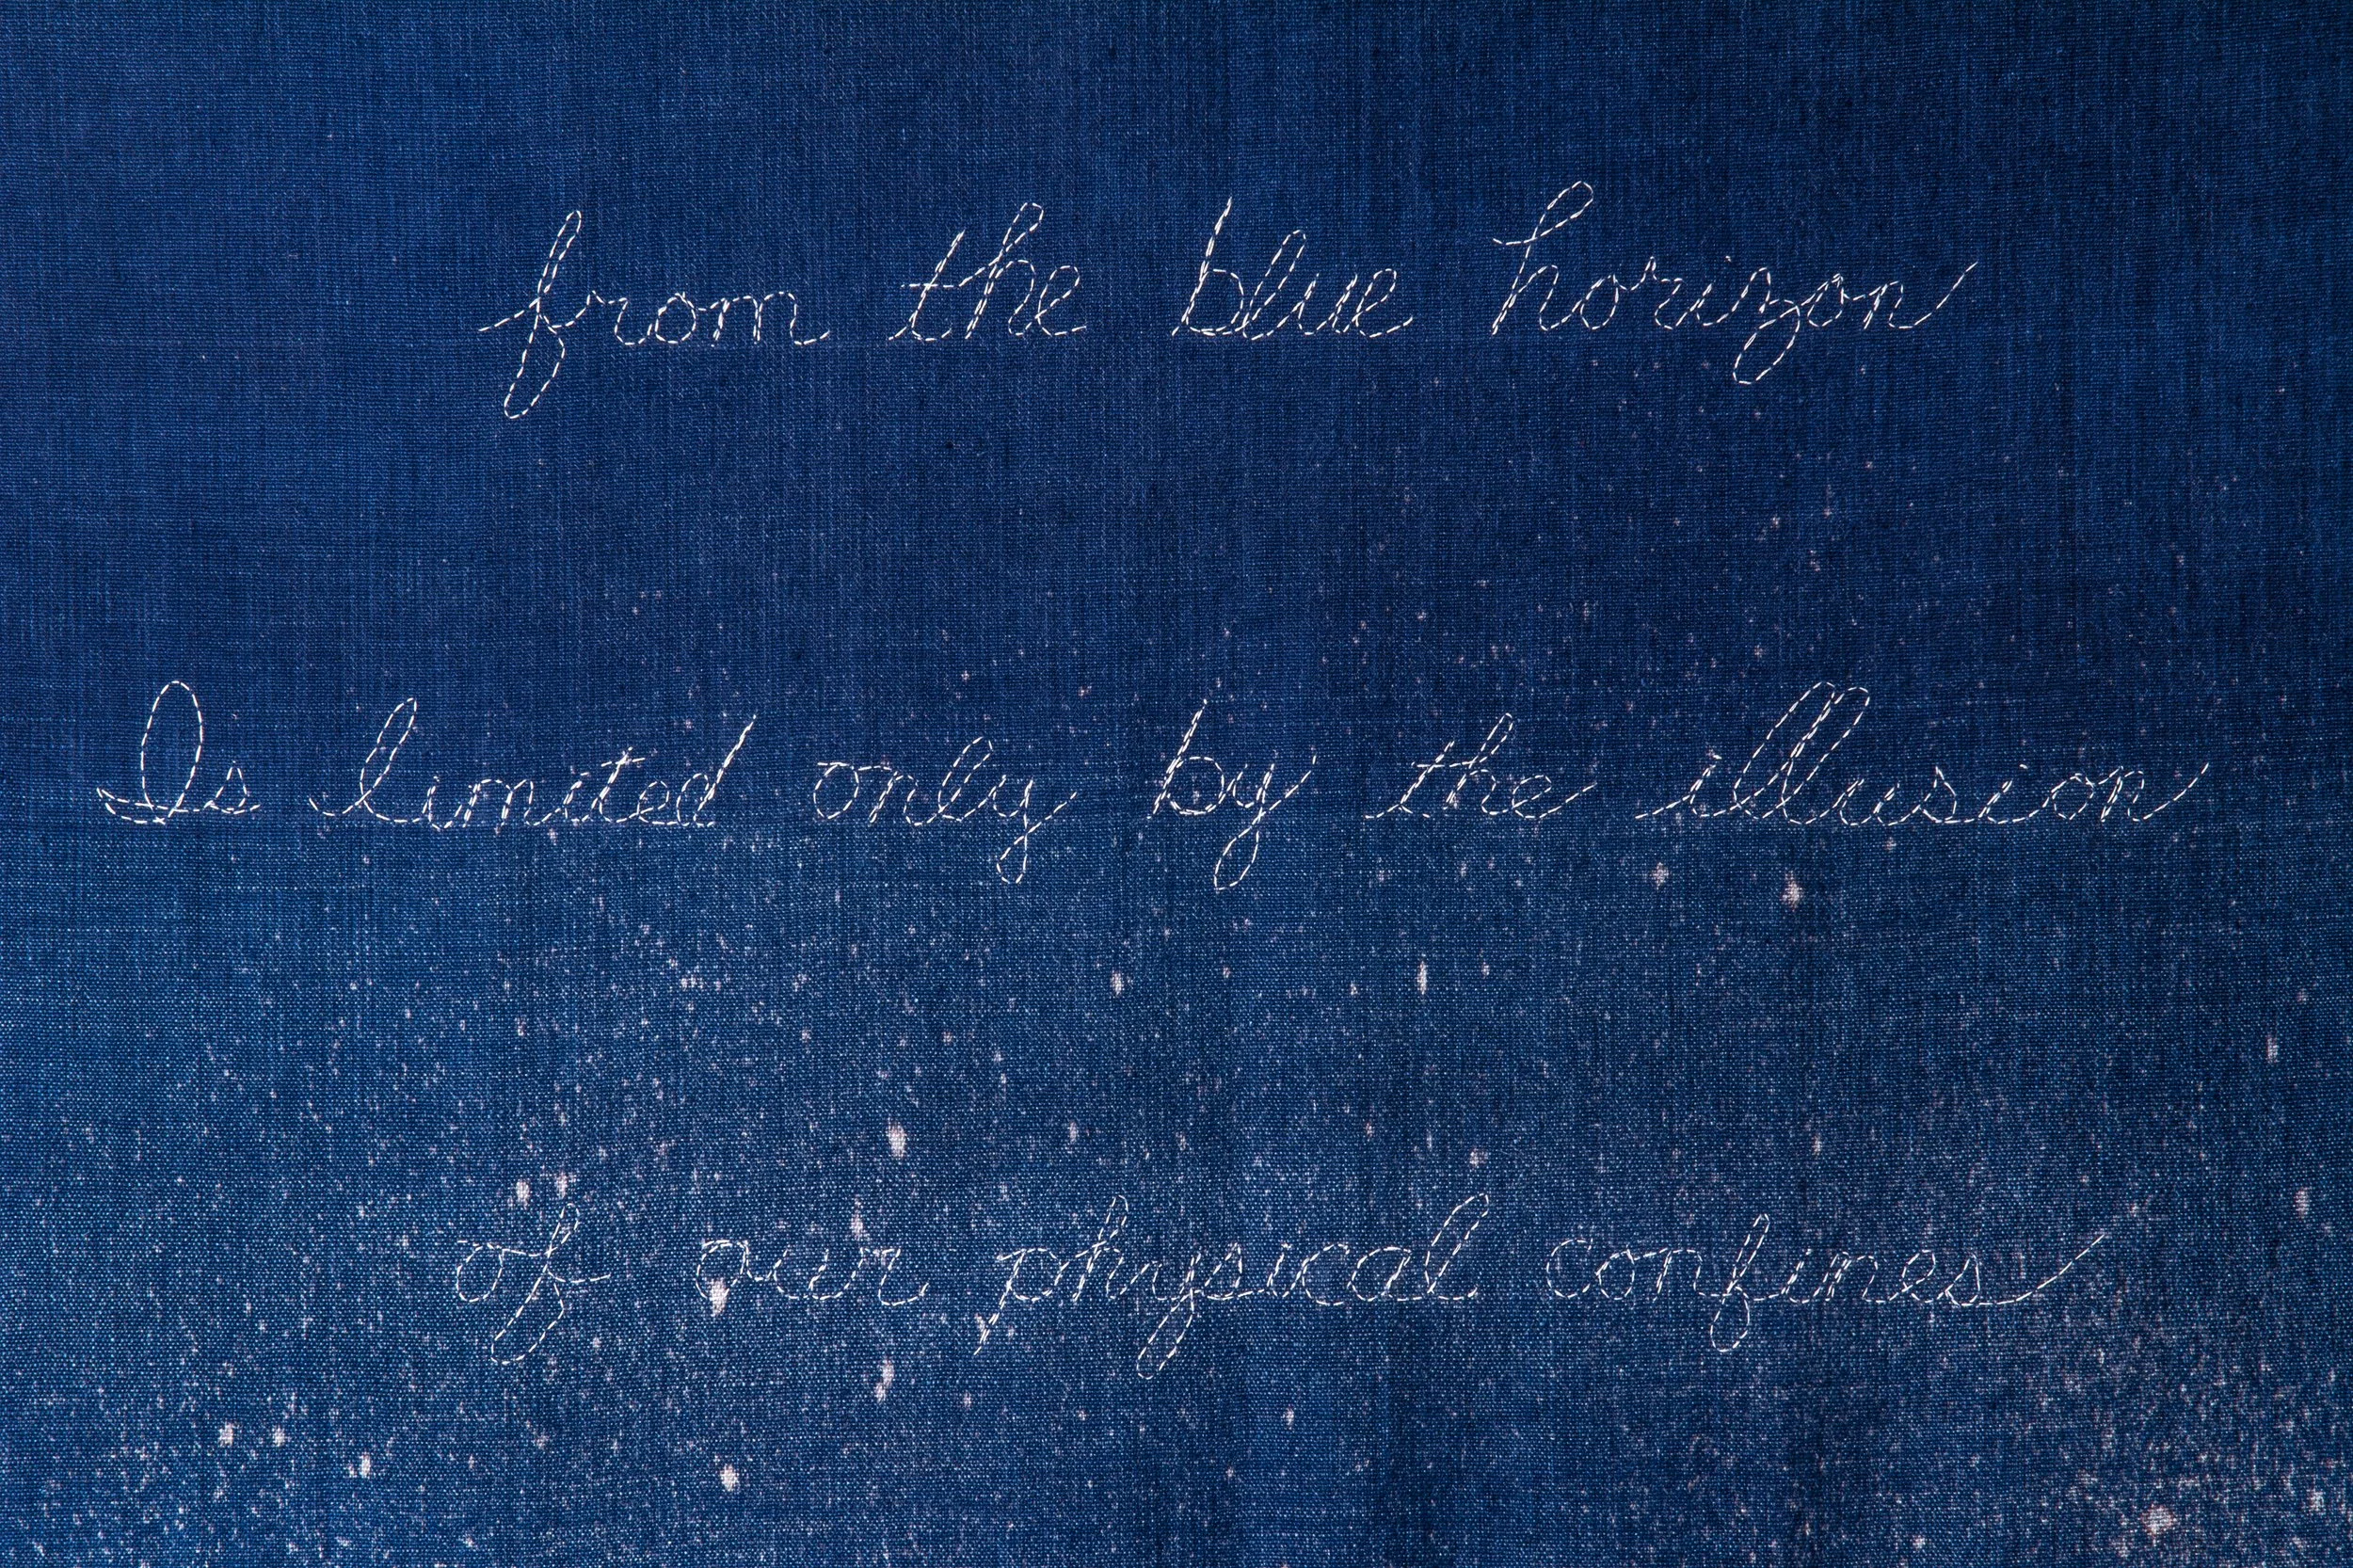 from the blue horizon
Is limited only by the illusion
of our physical confines